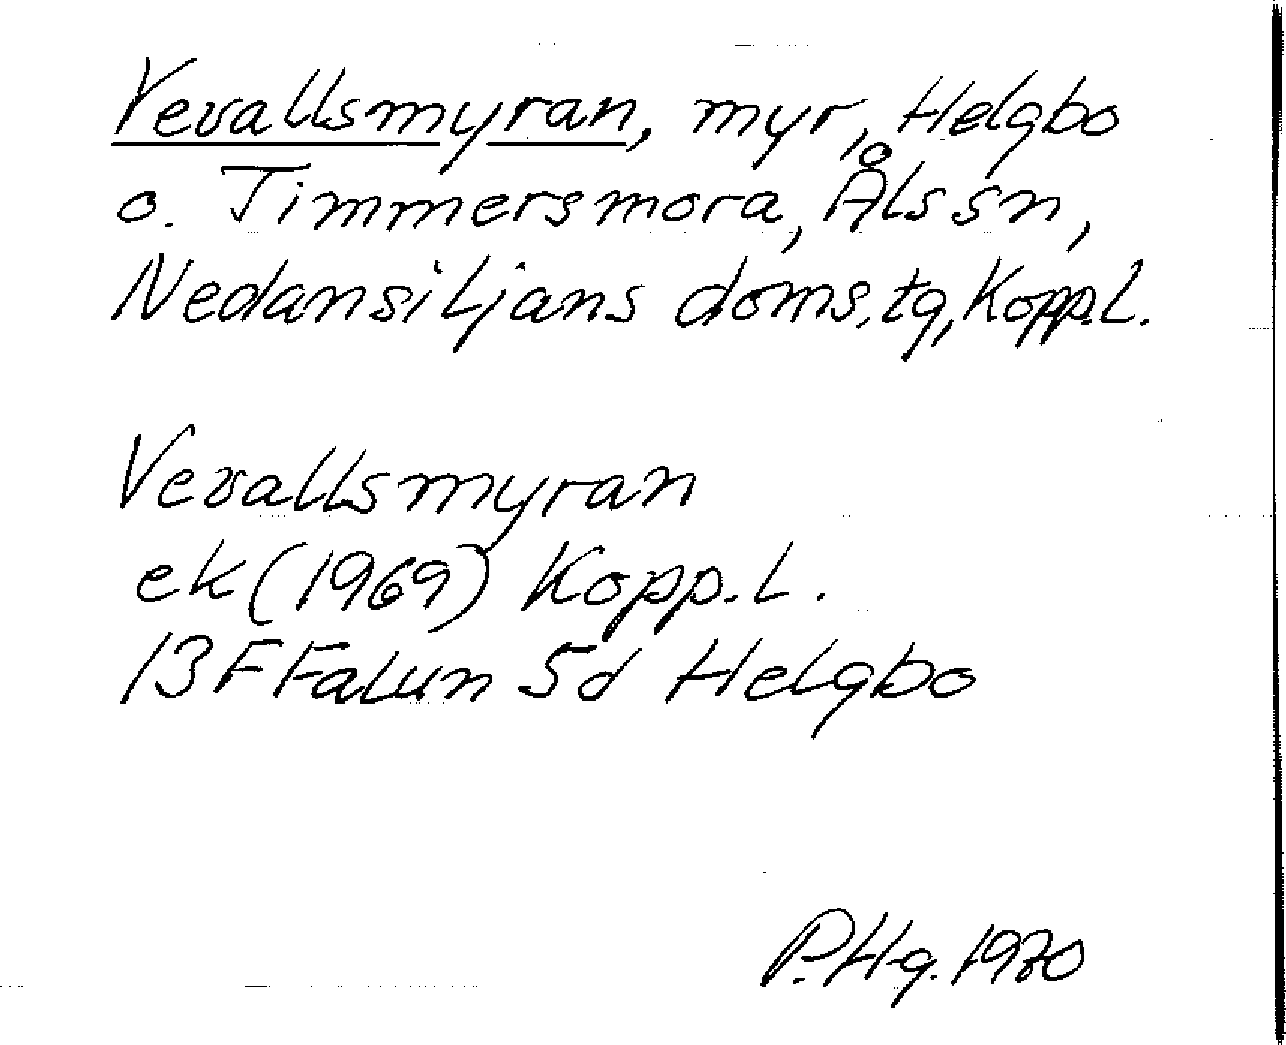 Vevallsmyran, myr, Helgbo
o. Timmersmora, Åls sn,
Nedansiljans doms.tg, Kopp.l.
Vevallsmyran
ek (1969) Kopp.l.
13F Falun 5d Helgbo
P.Hg. 1970